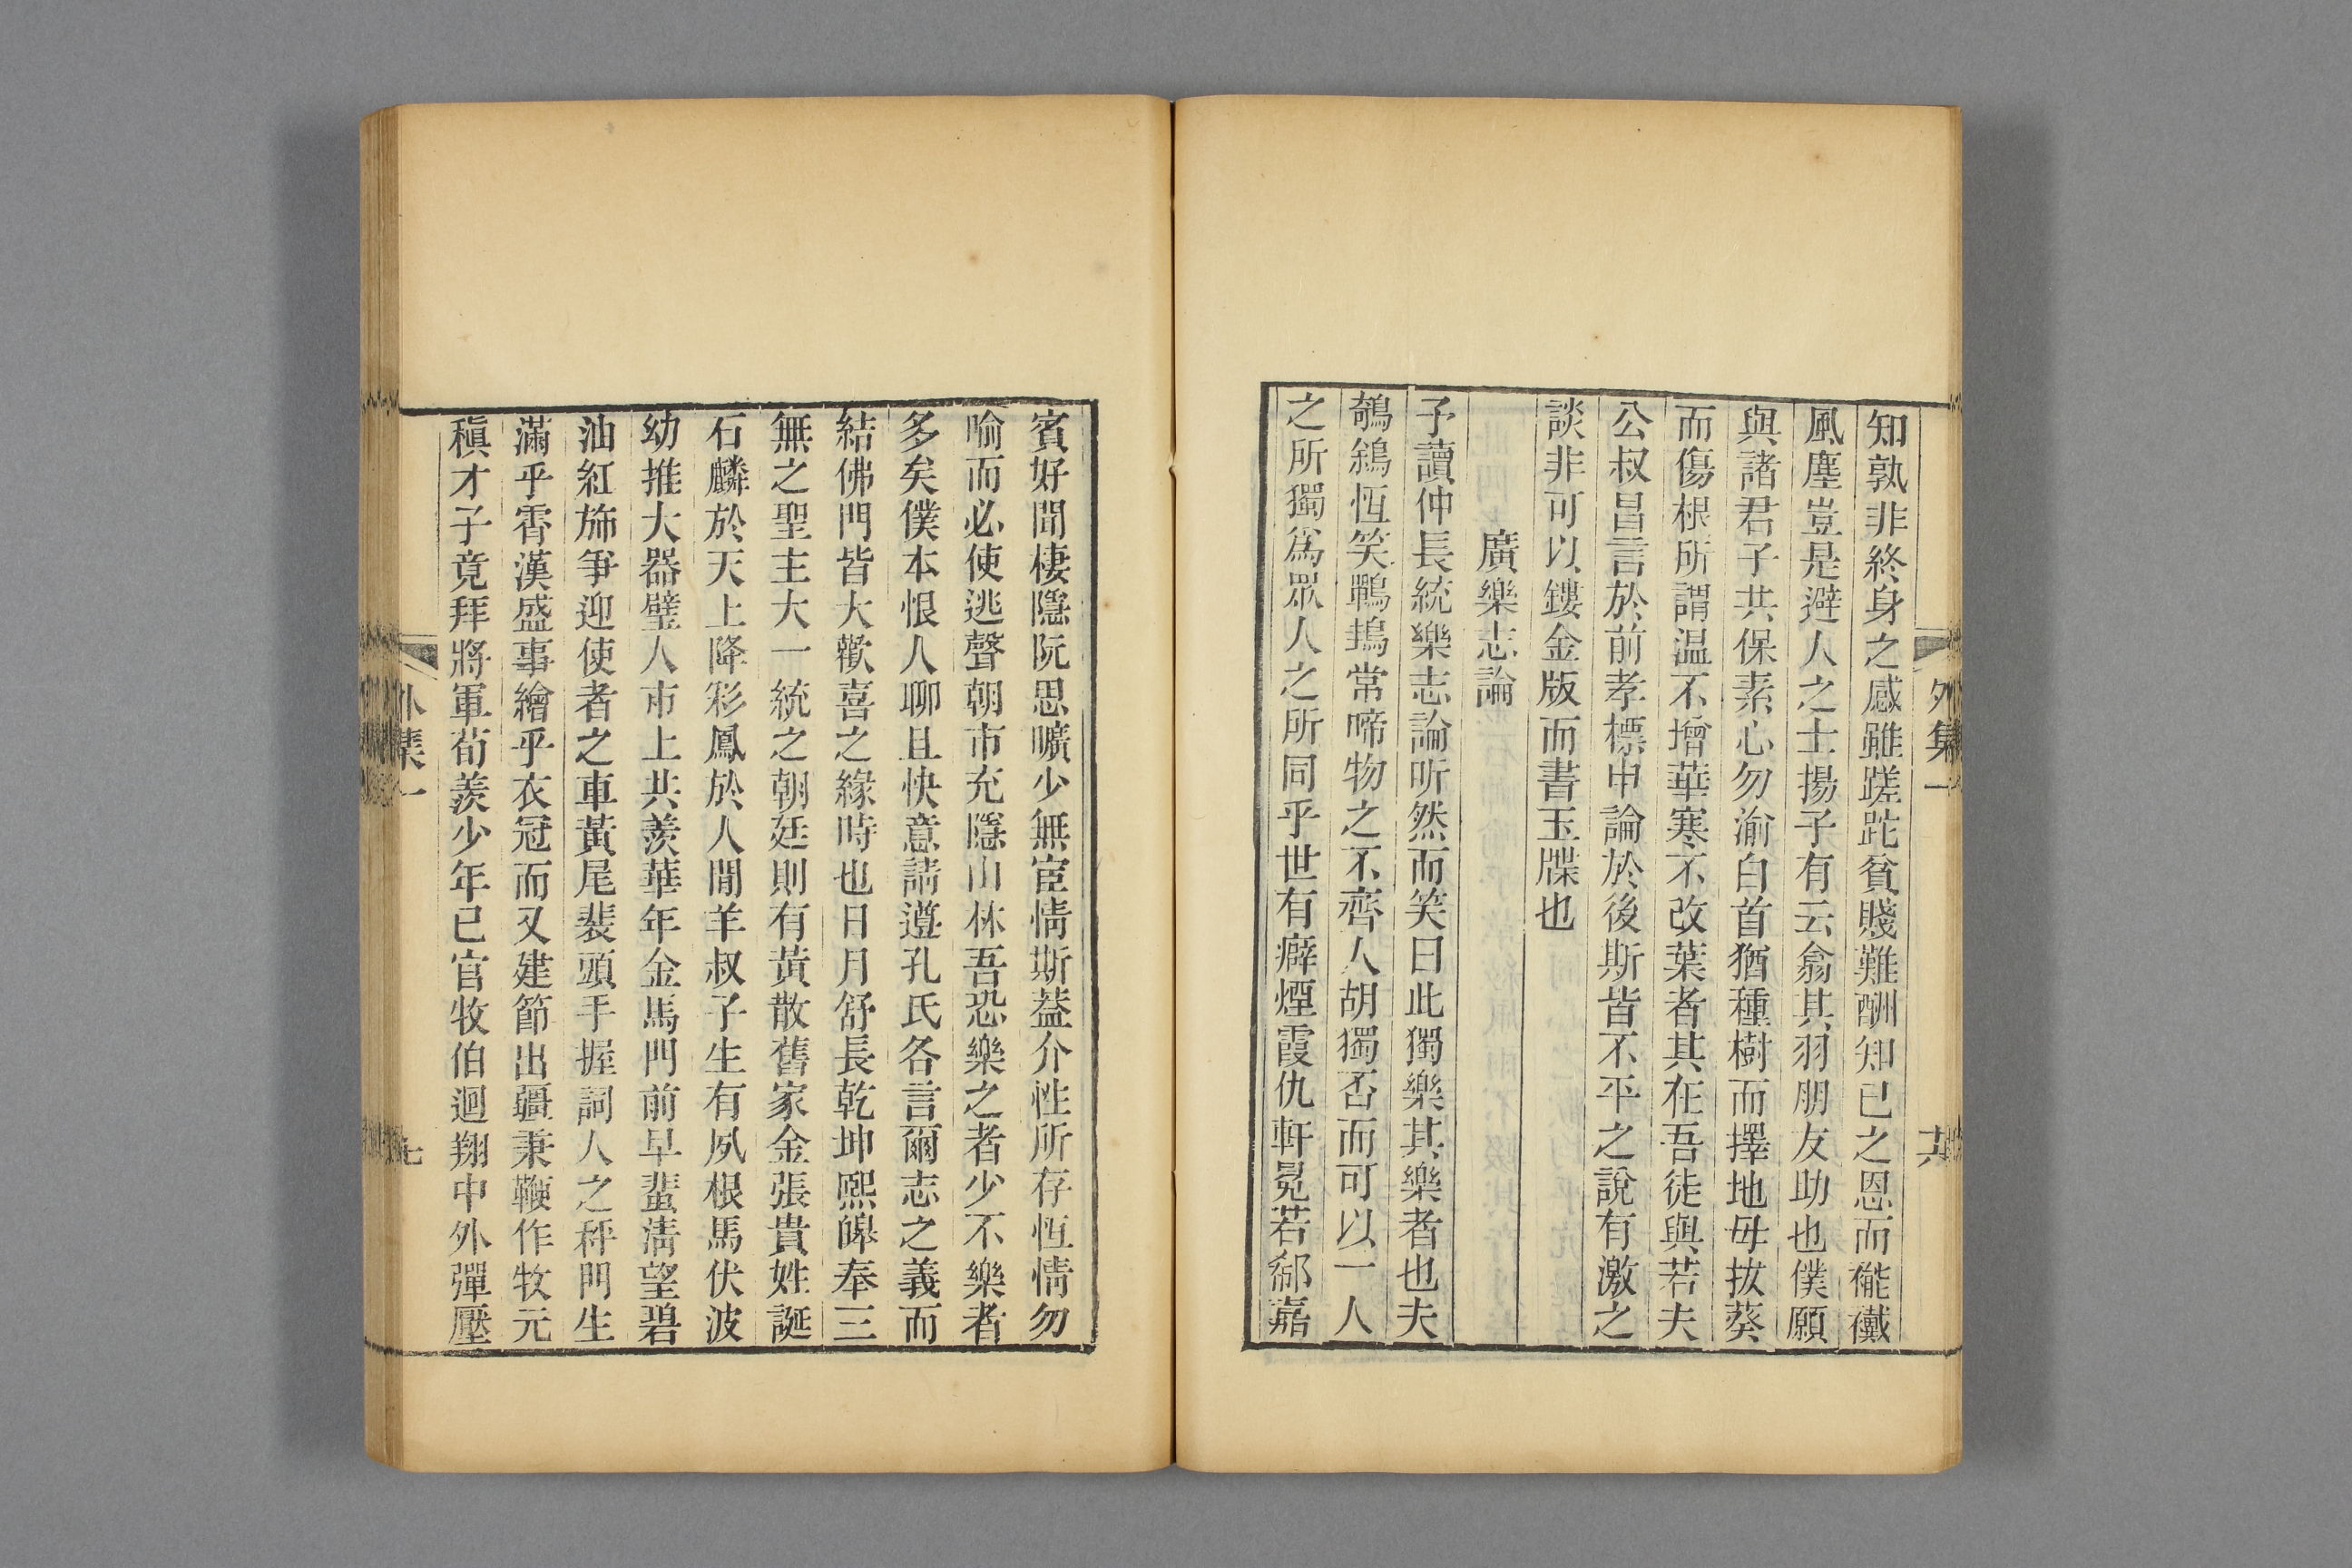 外集一
十六
知孰非終身之感雖蹉跎貧賤難酬知已之恩而襬襶
風塵豈是避人之士揚子有云翕其羽朋友助也僕願
與諸君子共保素心勿渝白首猶種樹而擇地毋拔葵
而傷根所謂温不增華寒不改葉者其在吾徒與若夫
公叔昌言於前孝標申論於後斯皆不平之說有激之
談非可以鏤金版而書玉牒也
廣樂志論
予讀仲長統樂志論听然而笑曰此獨樂其樂者也夫
鵸鵌恆笑鸓鳴常啼物之不齊人胡獨否而可以一人
之所獨爲眾人之所同乎世有癖煙霞仇軒冕若郤嘉
賓好聞棲隱阮思曠少無宦情斯葢介性所存恆情勿
喻而必使逃聲朝市充隱山林吾恐樂之者少不樂者
多矣僕本恨人聊且快意請遵孔氏各言爾志之義而
結佛門皆大歡喜之緣時也日月舒長乾坤熙皞奉三
無之聖主大一統之朝廷則有黃散舊家金張貴姓誕
石麟於天上降彩鳳於人閒羊叔子生有夙根馬伏波
幼推大器璧人市上共羨華年金馬門前早蜚淸望碧
油紅斾爭迎使者之車黃尾裴頭手握詞人之秤門生
滿乎霄漢盛事繪乎衣冠而又建節出疆秉鞭作牧元
稹才子竟拜將軍荀羨少年已官牧伯迴翔中外彈壓
外集一
七